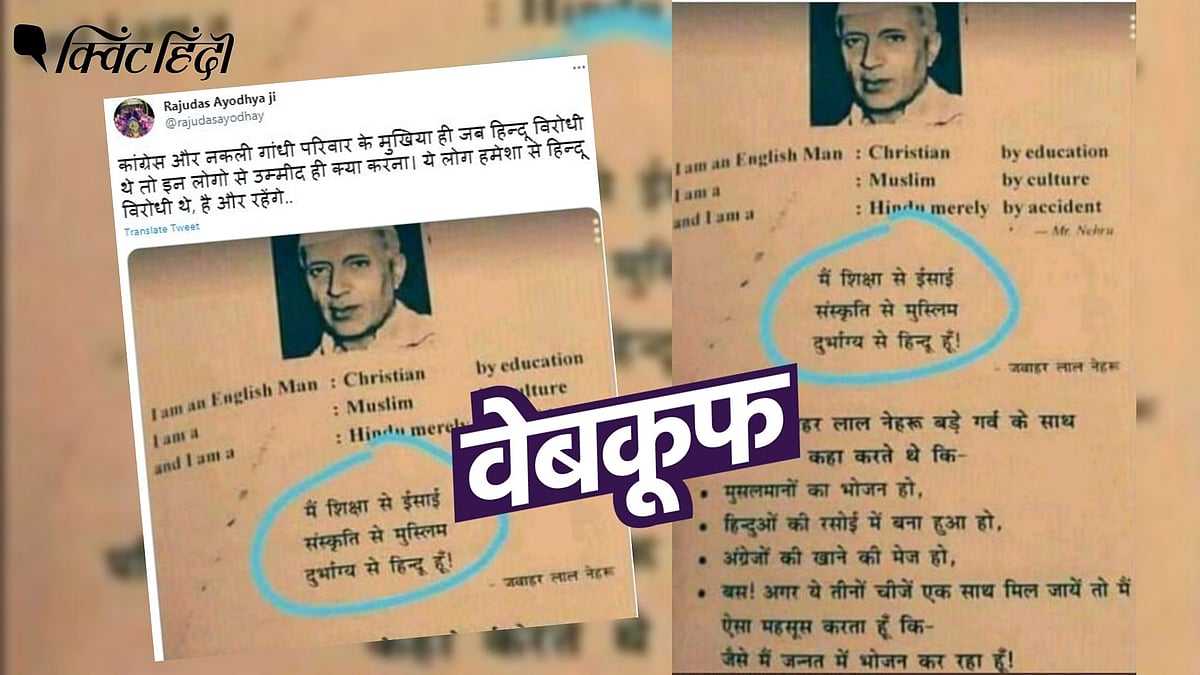 क्विंट हिंदी
Rajudas Ayodhya ji
@rajudasayodhay
कांग्रेस और नकली गांधी परिवार के मुखिया ही जब हिन्दू विरोधी
थे तो इन लोगो से उम्मीद ही क्या करना। ये लोग हमेशा से हिन्दू
विरोधी थे, है और रहेंगे..
Translate Tweet
I am an English Man : Christian by education
I am a : Muslim culture
and I am a : Hindu merely
मैं शिक्षा से ईसाई
संस्कृति से मुस्लिम
दुर्भाग्य से हिन्दू हूँ!
- जवाहर लाल नेहरू
वेबकूफ
I am an English Man : Christian by education
I am a : Muslim by culture
and I am a : Hindu merely by accident
— Mr. Nehru
मैं शिक्षा से ईसाई
संस्कृति से मुस्लिम
दुर्भाग्य से हिन्दू हूँ!
- जवाहर लाल नेहरू
हर लाल नेहरू बड़े गर्व के साथ
कहा करते थे कि-
• मुसलमानों का भोजन हो,
• हिन्दुओं की रसोई में बना हुआ हो,
• अंग्रेजों की खाने की मेज हो,
• बस! अगर ये तीनों चीजें एक साथ मिल जायें तो मैं
ऐसा महसूस करता हूँ कि-
जैसे मैं जन्नत में भोजन कर रहा हूँ!